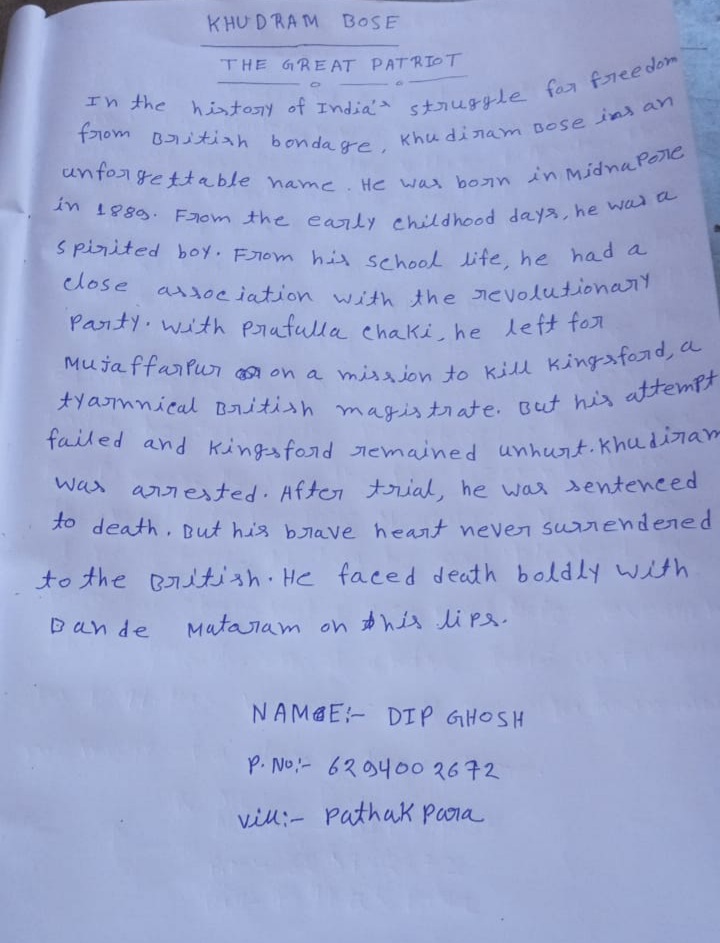 KHUDRAM BOSE
THE GREAT PATRIOT
In the history of India's struggle for freedom
from British bondage, Khudiram Bose ins an
unforgettable name. He was born in Midnapore
in 1889. From the early childhood days, he was a
spirited boy. From his school life, he had a
close association with the revolutionary
Party. With Prafulla Chaki, he left for
Mujaffarpur on a mission to kill Kingsford, a
tyarnnical British magistrate. But his attempt
failed and Kingsford remained unhurt. Khudiram
was arrested. After trial, he was sentenced
to death. But his brave heart never surrendered
to the British. He faced death boldly with
Bande Mataram on his lips.
NAME:- DIP GHOSH
P. No:- 6294002672
Vill:- Pathak Para